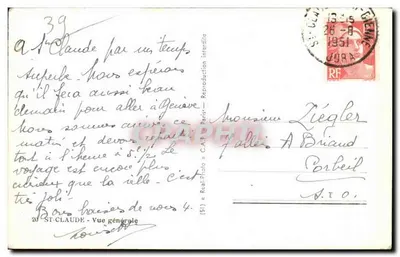 39
A St Claude par un temps
superbe. Nous espérons
qu'il fera aussi beau
demain pour aller à Genève
Nous sommes arrivés ce
matin et devons repartir
tôt à l'heure à 5h le
voyage est encore plus
curieux que la ville - C'est
très joli.
Bons baisers de nous 4.
20 ST-CLAUDE - Vue générale
(SI) « Real-Photo » C.A.P. Paris — Reproduction interdite
ST-CLAUDE
26-8
1951
JURA
RF
Monsieur Ziégler
A Briand
Corbeil
S. & O.